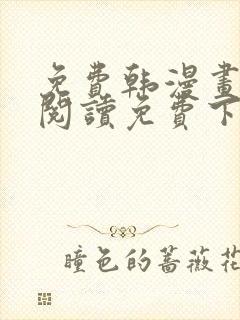 免费韩漫畫
閱讀免费下
瞳色的蔷薇花